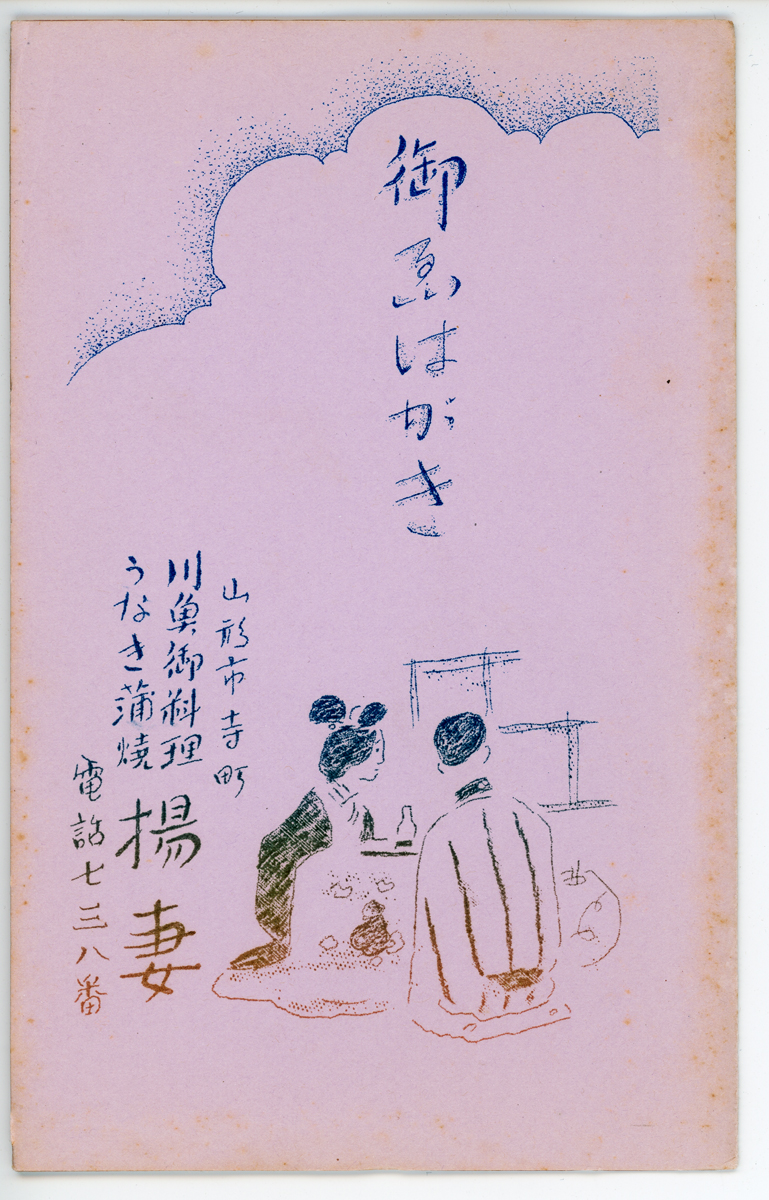 御画はがき
山形市寺町
川魚御料理
うなき蒲焼
揚妻
電話七三八番